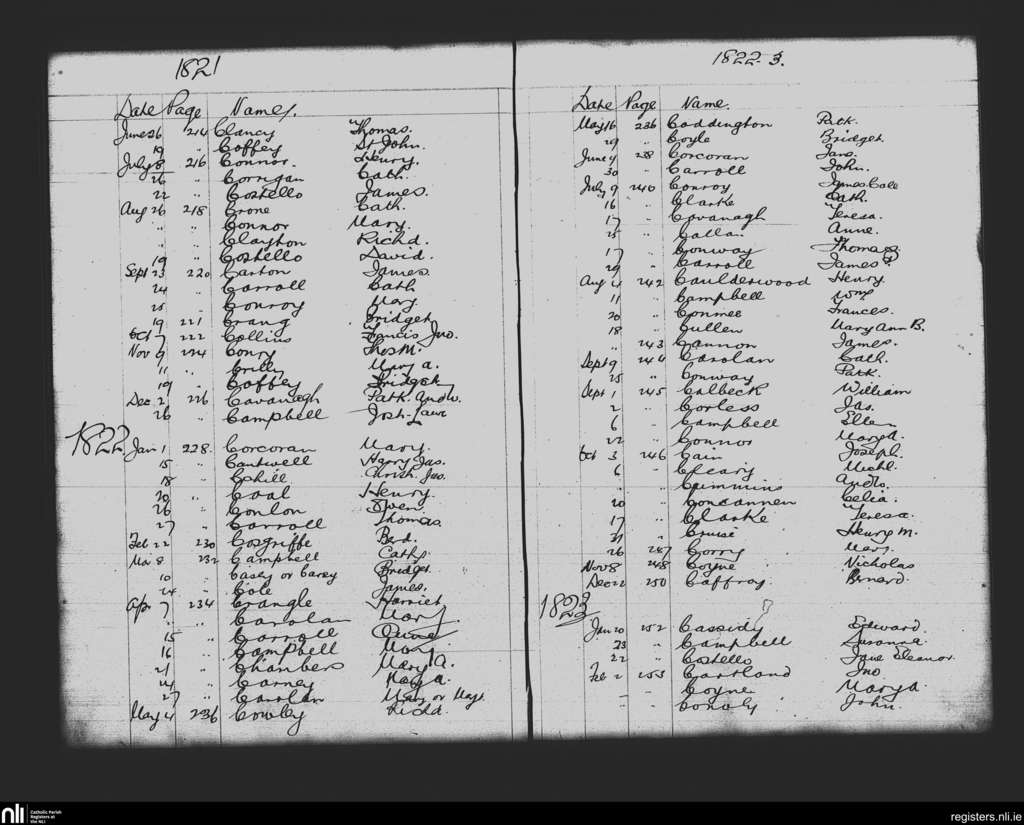 1821
Date Page Names.
June 26 214 Clancy Thomas.
19 " Coffey St John.
July 8 216 Connor. Henry.
26 " Corrigan Cath.
22 " Costello James.
Aug 26 218 Crone Cath.
" " Connor Mary.
" " Clayton Richd.
19 " Costello David.
Sept 23 220 Carton James
24 " Carroll Cath
25 " Conroy Mary.
19 221 Bridget
Oct 7 222 Collins Francis Jno.
Nov 9 224 Conry Thos M.
11 " Crilly Mary a.
19 " Coffey Bridget
Dec. 2 226 Cavanagh Patk. Andw.
26 " Campbell Josh.
1822. Jan 1 228. Corcoran Mary.
15 " Cantwell Harry Jas.
18 " Cahill Jno.
20 " Coal Henry.
26 " Conlon Owen.
27 " Carroll Thomas.
Feb 22 230 Cosgriffe Bed.
Mar 8 232 Campbell Cath.
10 " Casey or Carey Bridget
24 " Cole James.
Apr 7 234 Crangle Harriet
" " Carolan Mary
15 " Carroll
16 " Campbell Mary
21 " Chambers Mary a.
24 " Carney
27 " Carolan Mary or Magt
May 4 236 Cowley
1822-3.
Date Page Name.
May 16 236 Coddington Patk.
29 " Coyle Bridget
June 4 238 Corcoran Jane.
30 " Carroll John.
July 9 240 Conroy James
16 " Clarke Cath.
17 " Cavanagh Teresa.
25 " Callan Anne.
17 " Conway Thomas
29 " Carroll James
Aug 4 242 Caulderwood Henry
11 " Campbell Wm
20 " Conmee Frances.
18 " Cullen Mary Ann B.
" 243 Cannon James.
Sept 9 244 Carolan Cath.
25 " Conway Patk.
Sept 1 245 Colbeck William
2 " Corless Jas.
6 " Campbell Ellen
22 " Connor Mary A.
Oct 3 246 Cain Joseph.
6 " Cleary Michl.
" " Cummins Andw.
20 " Concannen Celia.
17 " Clarke Teresa.
21 " Cruise Henry M.
26 247 Corry Mary.
Nov 8 248 Coyne Nicholas
Dec 22 250 Caffray Bernard.
1823
Jan 20 252 Cassidy Edward.
23 " Campbell Susanna
22 " Costello Jane Eleanor.
Feb 2 253 Cartland Jno
" " Coyne Mary a.
" " Conoly John.
nli
Catholic Parish
Registers at
the NLI
registers.nli.ie